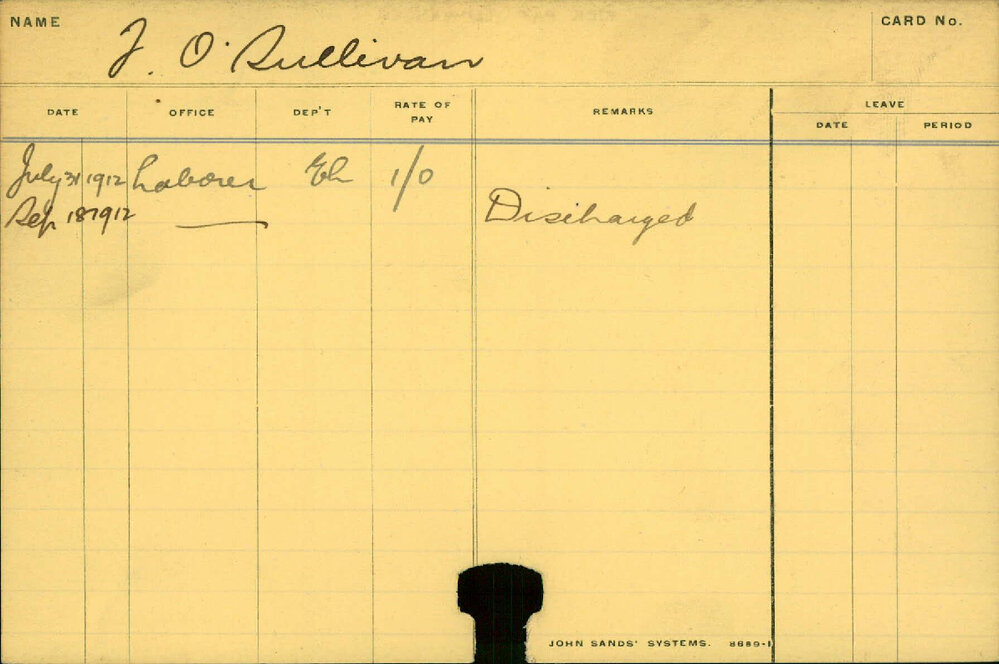 NAME
J. O'Sullivan
CARD No.
DATE OFFICE DEP'T RATE OF PAY REMARKS LEAVE
DATE PERIOD
July 31 1912 Laborer Eh 1/0
Sep 18 1912 — Discharged
JOHN SANDS' SYSTEMS. 8689-1